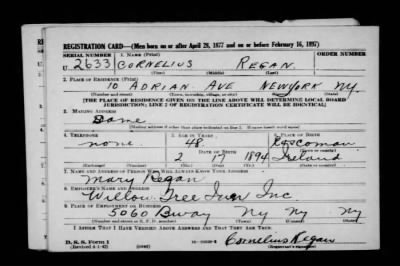 REGISTRATION CARD—(Men born on or after April 28, 1877 and on or before February 16, 1897)
SERIAL NUMBER 1. NAME (Print) ORDER NUMBER
U. 2633 CORNELIUS REGAN
(First) (Middle) (Last)
2. PLACE OF RESIDENCE (Print)
10 ADRIAN AVE NEWYORK NY.
(Number and street) (Town, township, village, or city) (County) (State)
[THE PLACE OF RESIDENCE GIVEN ON THE LINE ABOVE WILL DETERMINE LOCAL BOARD
JURISDICTION; LINE 2 OF REGISTRATION CERTIFICATE WILL BE IDENTICAL]
3. MAILING ADDRESS
Same
(Mailing address if other than place indicated on line 2. If same insert word same)
4. TELEPHONE 5. AGE IN YEARS 6. PLACE OF BIRTH
none. 48
DATE OF BIRTH (Town or county)
2 17 1894 Ireland
(Exchange) (Number) (Mo.) (Day) (Yr.) (State or country)
7. NAME AND ADDRESS OF PERSON WHO WILL ALWAYS KNOW YOUR ADDRESS
Mary Regan
8. EMPLOYER'S NAME AND ADDRESS
Willow Tree Inn Inc.
9. PLACE OF EMPLOYMENT OR BUSINESS
5060 Bway Ny Ny Ny
(Number and street or R. F. D. number) (Town) (County) (State)
I AFFIRM THAT I HAVE VERIFIED ABOVE ANSWERS AND THAT THEY ARE TRUE.
D. S. S. Form 1
(Revised 4-1-42) (over) Cornelius Regan